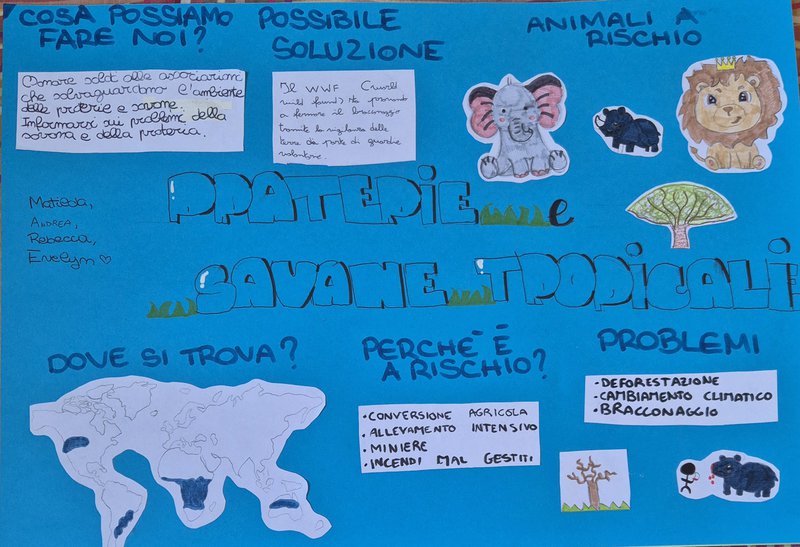 COSA POSSIAMO
FARE NOI?
Donare soldi alle associazioni
che salvaguardano l'ambiente
delle praterie e savane.
Informarsi sui problemi della
savana e della prateria.
POSSIBILE
SOLUZIONE
Il WWF (world
wild found) sta provando
a fermare il bracconaggio
tramite la vigilanza delle
terre da parte di guardie
volontarie.
ANIMALI A
RISCHIO
Matilda,
ANDREA,
Rebecca,
Evelyn
PRATERIE e
SAVANE TROPICALI
DOVE SI TROVA?
PERCHÈ È
A RISCHIO?
• CONVERSIONE AGRICOLA
• ALLEVAMENTO INTENSIVO
• MINIERE
• INCENDI MAL GESTITI
PROBLEMI
• DEFORESTAZIONE
• CAMBIAMENTO CLIMATICO
• BRACCONAGGIO